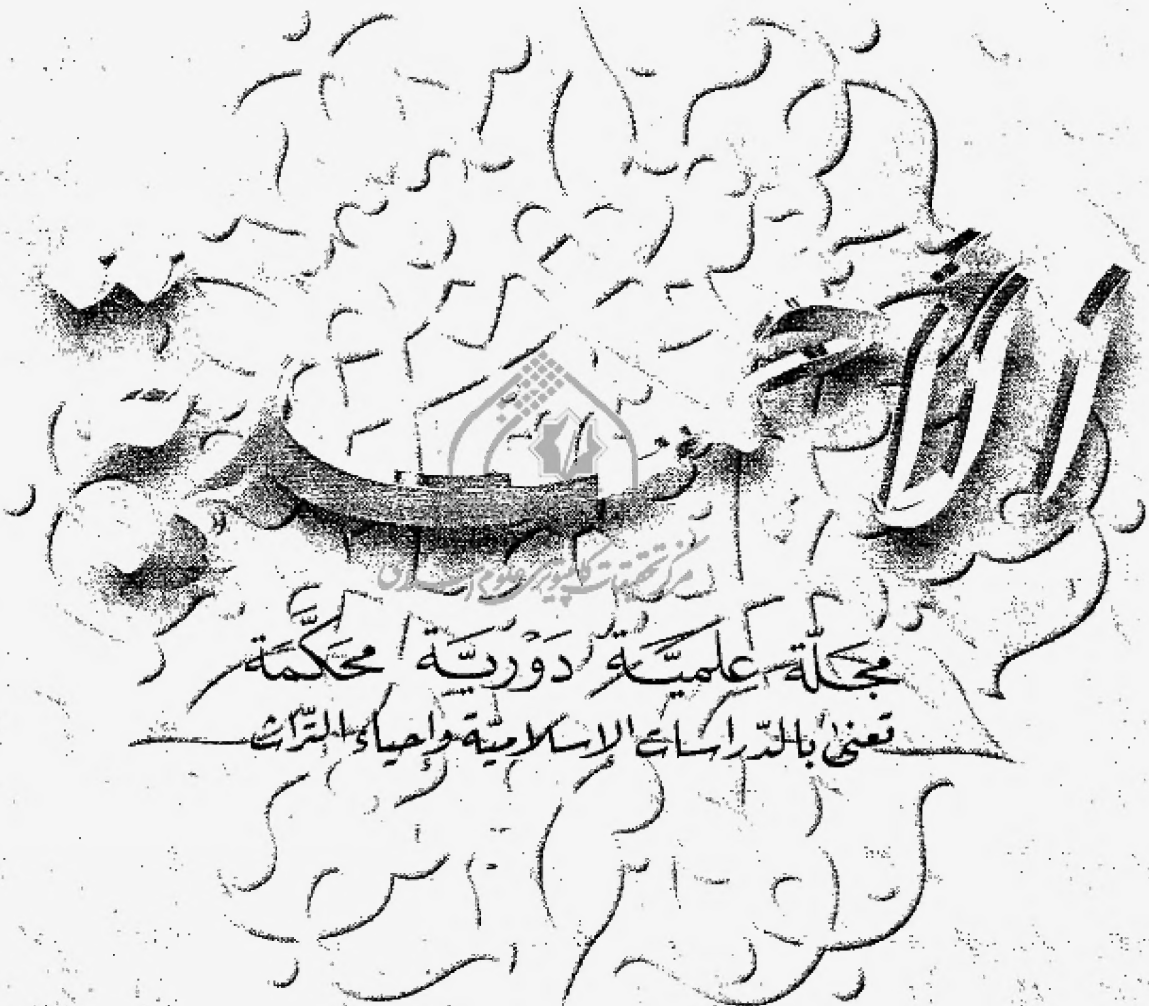 الأحمدية
مرکز تحقیقات کامپیوتری علوم اسلامی
مَجَلَّة عِلميَّة دَوْريَّة محَكَّمَة
تعنىٰ بالدّراسات الإسلاميّة وإحياء التّراث